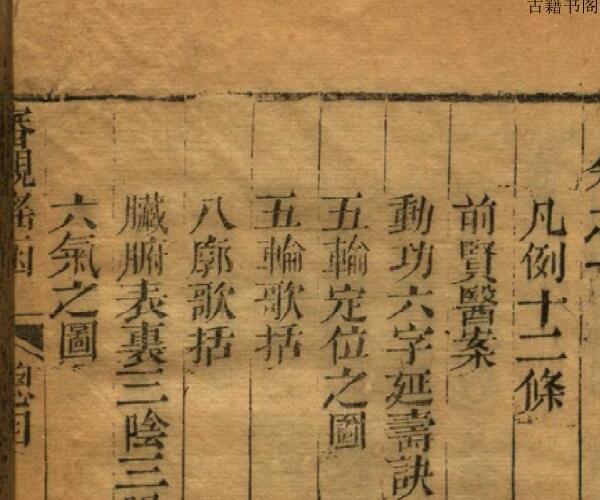 古籍书阁
凡例十二條
前賢醫案
動功六字延壽訣
五輪定位之圖
五輪歌括
八廓歌括
臟腑表裏三陰三
六氣之圖
審視瑤函
總目